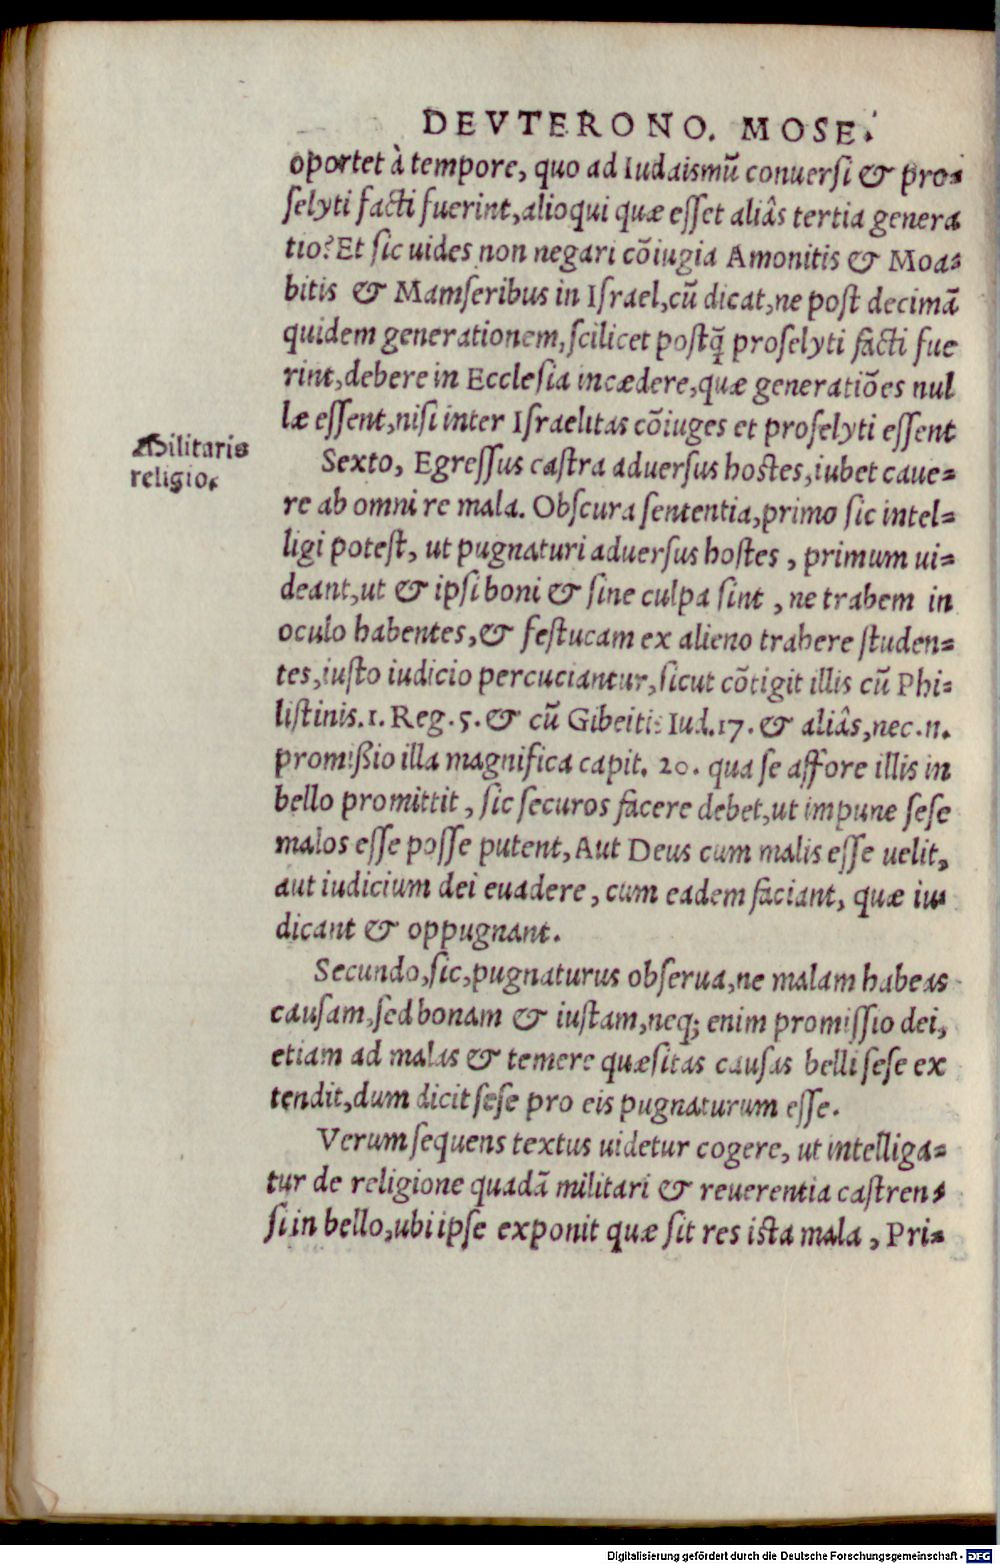 DEVTERONO. MOSE.
oportet à tempore, quo ad Iudaismū conuersi & pro-
selyti facti fuerint, alioqui quæ esset aliâs tertia genera
tio? Et sic uides non negari cōiugia Amonitis & Moa-
bitis & Mamseribus in Israel, cū dicat, ne post decimā
quidem generationem, scilicet postq̄ proselyti facti fue
rint, debere in Ecclesia incædere, quæ generatiōes nul
læ essent, nisi inter Israelitas cōiuges et proselyti essent
Militaris
religio.
Sexto, Egressus castra aduersus hostes, iubet caue-
re ab omni re mala. Obscura sententia, primo sic intel-
ligi potest, ut pugnaturi aduersus hostes, primum ui-
deant, ut & ipsi boni & sine culpa sint, ne trabem in
oculo habentes, & festucam ex alieno trahere studen-
tes, iusto iudicio percuciantur, sicut cōtigit illis cū Phi-
listinis. 1. Reg. 5. & cū Gibeitis Iud. 17. & aliâs, nec .n.
promißio illa magnifica capit. 20. qua se affore illis in
bello promittit, sic securos facere debet, ut impune sese
malos esse posse putent, Aut Deus cum malis esse uelit,
aut iudicium dei euadere, cum eadem faciant, quæ iu-
dicant & oppugnant.
Secundo, sic, pugnaturus obserua, ne malam habeas
causam, sed bonam & iustam, neq; enim promissio dei,
etiam ad malas & temere quæsitas causas belli sese ex
tendit, dum dicit sese pro eis pugnaturum esse.
Verum sequens textus uidetur cogere, ut intelliga-
tur de religione quadā militari & reuerentia castren-
si in bello, ubi ipse exponit quæ sit res ista mala, Pri-
Digitalisierung gefördert durch die Deutsche Forschungsgemeinschaft - DFG